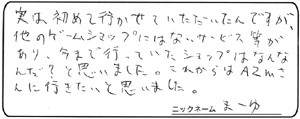 実は初めて行かせていただいたんですが、
他のゲームショップにはないサービス等が
あり、今まで行っていたショップはなんな
んだ?と思いました。これからはAZmさ
んに行きたいと思いました。
ニックネーム まーゆ